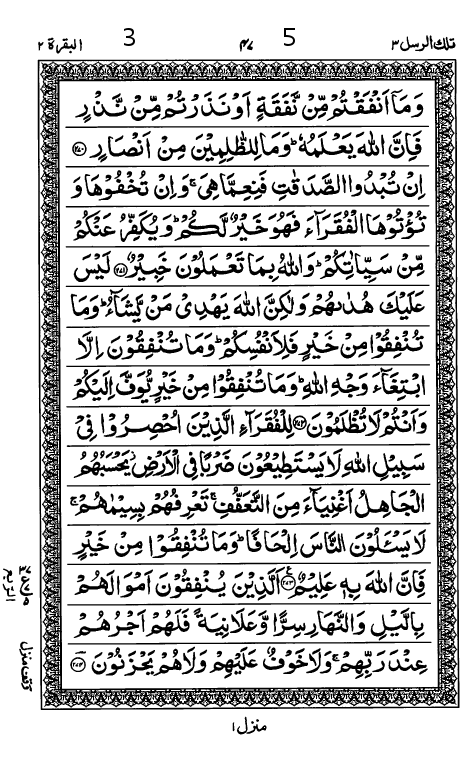 تلك الرسل ٣ 5 ٤٧ 3 البقرة ٢
وَمَآ اَنْفَقْتُمْ مِّنْ نَّفَقَةٍ اَوْ نَذَرْتُمْ مِّنْ نَّذْرٍ
فَاِنَّ اللّٰهَ يَعْلَمُهٗ ؕ وَمَا لِلظّٰلِمِيْنَ مِنْ اَنْصَارٍ ﴿۲۷۰﴾
اِنْ تُبْدُوا الصَّدَقٰتِ فَنِعِمَّا هِىَ ۚ وَاِنْ تُخْفُوْهَا وَ
تُؤْتُوْهَا الْفُقَرَآءَ فَهُوَ خَيْرٌ لَّكُمْ ؕ وَيُكَفِّرُ عَنْكُمْ
مِّنْ سَيِّاٰتِكُمْ ؕ وَاللّٰهُ بِمَا تَعْمَلُوْنَ خَبِيْرٌ ﴿۲۷۱﴾ لَيْسَ
عَلَيْكَ هُدٰىهُمْ وَلٰكِنَّ اللّٰهَ يَهْدِىْ مَنْ يَّشَآءُ ؕ وَمَا
تُنْفِقُوْا مِنْ خَيْرٍ فَلِاَنْفُسِكُمْ ؕ وَمَا تُنْفِقُوْنَ اِلَّا
ابْتِغَآءَ وَجْهِ اللّٰهِ ؕ وَمَا تُنْفِقُوْا مِنْ خَيْرٍ يُّوَفَّ اِلَيْكُمْ
وَاَنْتُمْ لَا تُظْلَمُوْنَ ﴿۲۷۲﴾ لِلْفُقَرَآءِ الَّذِيْنَ اُحْصِرُوْا فِىْ
سَبِيْلِ اللّٰهِ لَا يَسْتَطِيْعُوْنَ ضَرْبًا فِى الْاَرْضِ ؗ يَحْسَبُهُمُ
الْجَاهِلُ اَغْنِيَآءَ مِنَ التَّعَفُّفِ ۚ تَعْرِفُهُمْ بِسِيْمٰهُمْ ۚ
لَا يَسْـَٔلُوْنَ النَّاسَ اِلْحَافًا ؕ وَمَا تُنْفِقُوْا مِنْ خَيْرٍ
فَاِنَّ اللّٰهَ بِهٖ عَلِيْمٌ ﴿۲۷۳﴾ اَلَّذِيْنَ يُنْفِقُوْنَ اَمْوَالَهُمْ
بِالَّيْلِ وَالنَّهَارِ سِرًّا وَّعَلَانِيَةً فَلَهُمْ اَجْرُهُمْ
عِنْدَ رَبِّهِمْ ۚ وَلَا خَوْفٌ عَلَيْهِمْ وَلَا هُمْ يَحْزَنُوْنَ ﴿۲۷۴﴾
وقف منزل
الربع
منزل ١